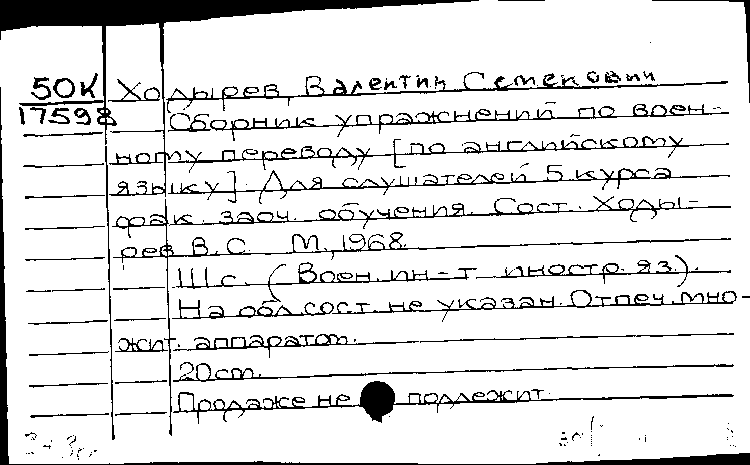 50К Ходырев, Валентин Семенович
17598 Сборник упражнений по воен-
ному переводу [по английскому
языку]. Для слушателей 5 курса
фак. заоч. обучения. Сост. Ходы-
рев В.С. М., 1968
111 с. (Воен. ин-т иностр. яз.).
На обл. сост. не указан. Отпеч. мно-
жит. аппаратом.
20 см.
Продаже не подлежит.